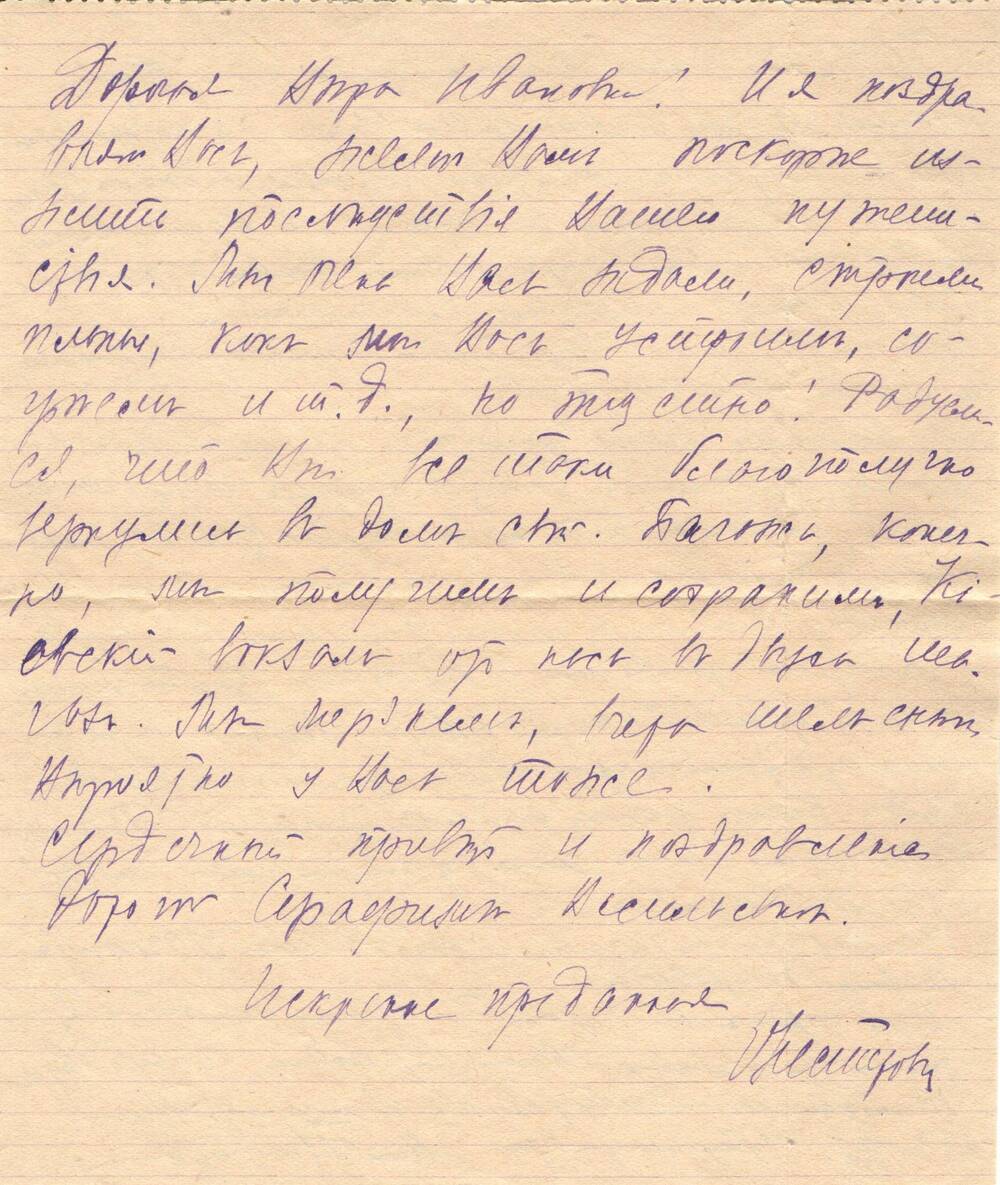 Дорогая Вѣра Ивановна! И я поздра
вляю Васъ, желаю Вамъ поскорѣе из-
жить послѣдствія Вашего путеше-
ствія. Мы очень Васъ ждали, строили
планы, какъ мы Васъ устроимъ, со-
грѣемъ и т.д., но тщетно! Радуем-
ся, что Вы все таки благополучно
вернулись въ домъ свой. Багажъ, конеч-
но, мы получимъ и сохранимъ, Кі
евскій вокзалъ отъ насъ въ двухъ ша-
гахъ. Мы мерзнемъ, вчера шелъ снѣгъ
Вѣроятно у Васъ тоже.
Сердечный привѣтъ и поздравленіе
дорогой Серафимѣ Васильевнѣ.
Искренне преданная
Е Нестерова